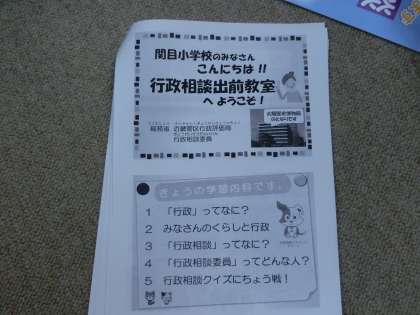 関目小学校のみなさん
こんにちは!!
行政相談出前教室
へ ようこそ!
総務省 近畿管区行政評価局
行政相談委員
きょうの学習内容です。
1 「行政」ってなに?
2 みなさんのくらしと行政
3 「行政相談」ってなに?
4 「行政相談委員」ってどんな人?
5 行政相談クイズにちょう戦!